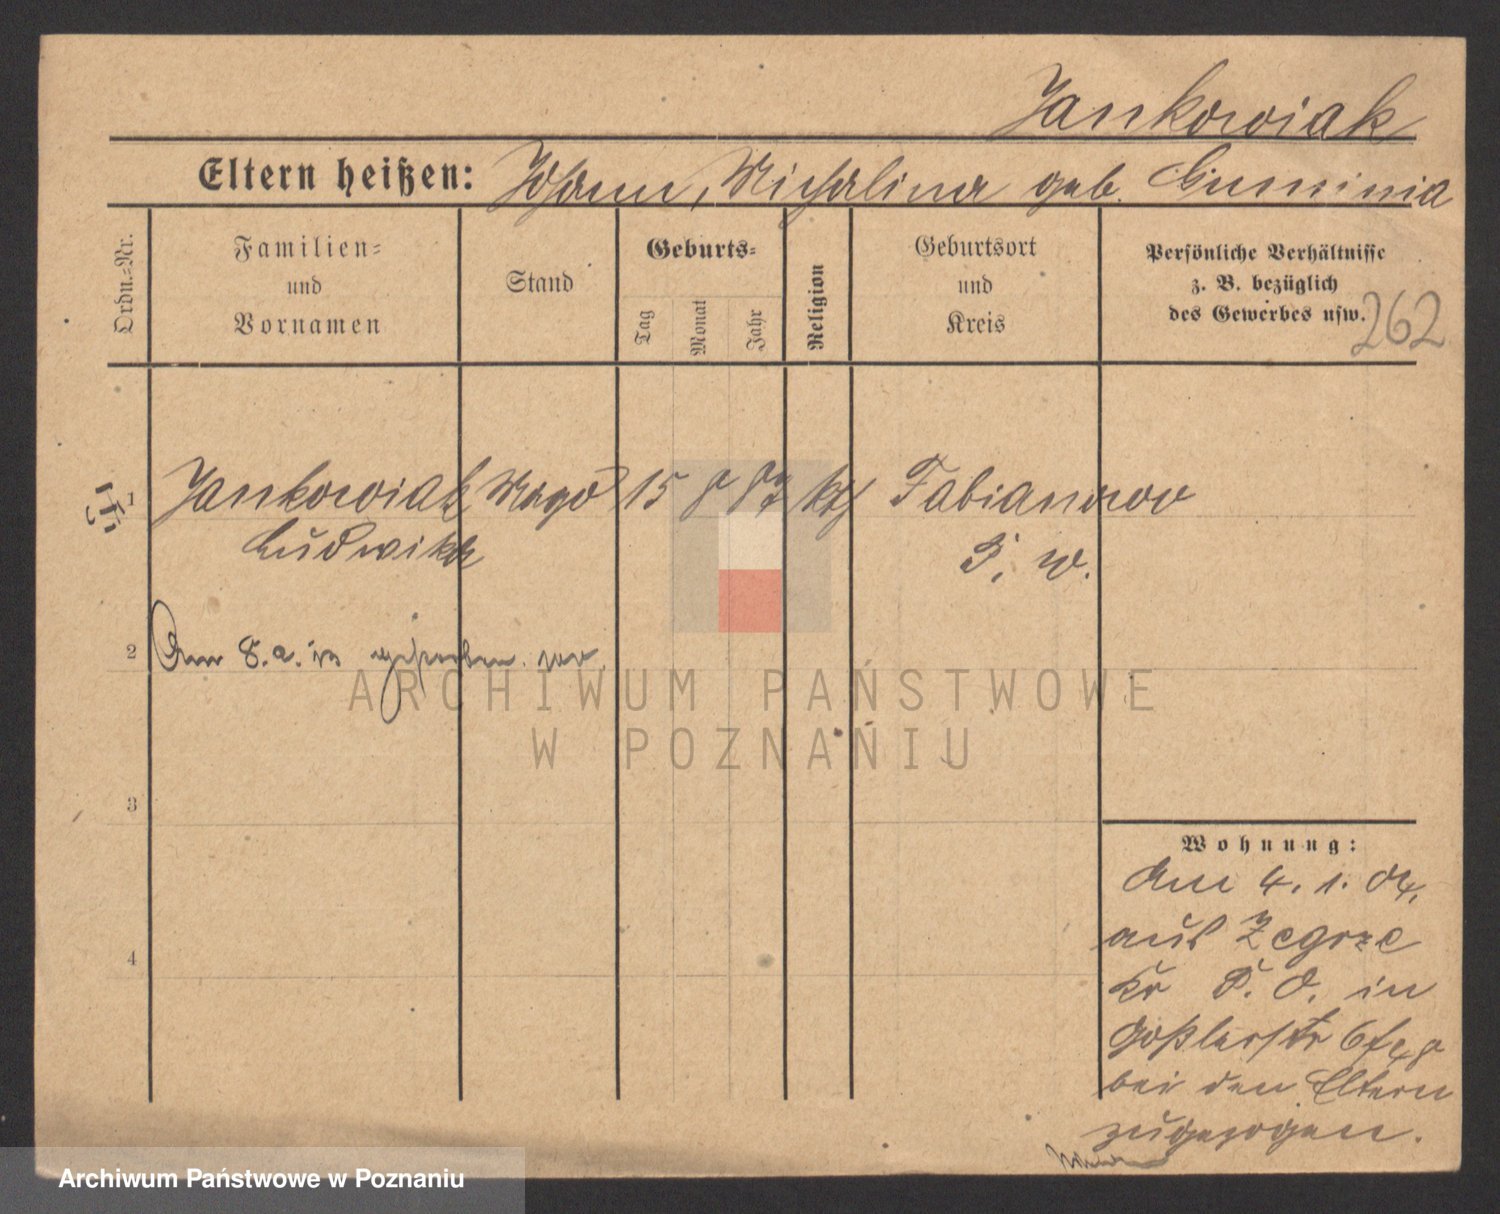 Jankowiak
Eltern heißen: Johann, Michalina geb.
Ordn.=Nr.
Familien=
und
Vornamen
Stand
Geburts=
Tag
Monat
Jahr
Religion
Geburtsort
und
Kreis
Persönliche Verhältnisse
z. B. bezüglich
des Gewerbes usw.
262
1
Jankowiak Magd 15 8 87 kth Fabianowo
Ludwika P. W.
2
Am 8.
3
4
Wohnung:
Am 4. 1. 04.
aus Zegrze
Kr P. O. in
Goßlerstr
bei den Eltern
zugezogen.
ARCHIWUM PAŃSTWOWE
W POZNANIU
Archiwum Państwowe w Poznaniu